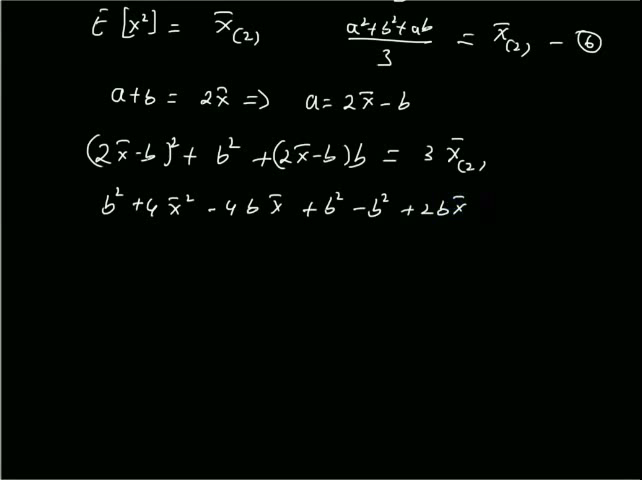 E [x²] = x̄₍₂₎   (a²+b²+ab)/3 = x̄₍₂₎ — ⑥
a+b = 2x̄ => a = 2x̄ - b
(2x̄-b)² + b² + (2x̄-b)b = 3 x̄₍₂₎
b² + 4x̄² - 4bx̄ + b² - b² + 2bx̄